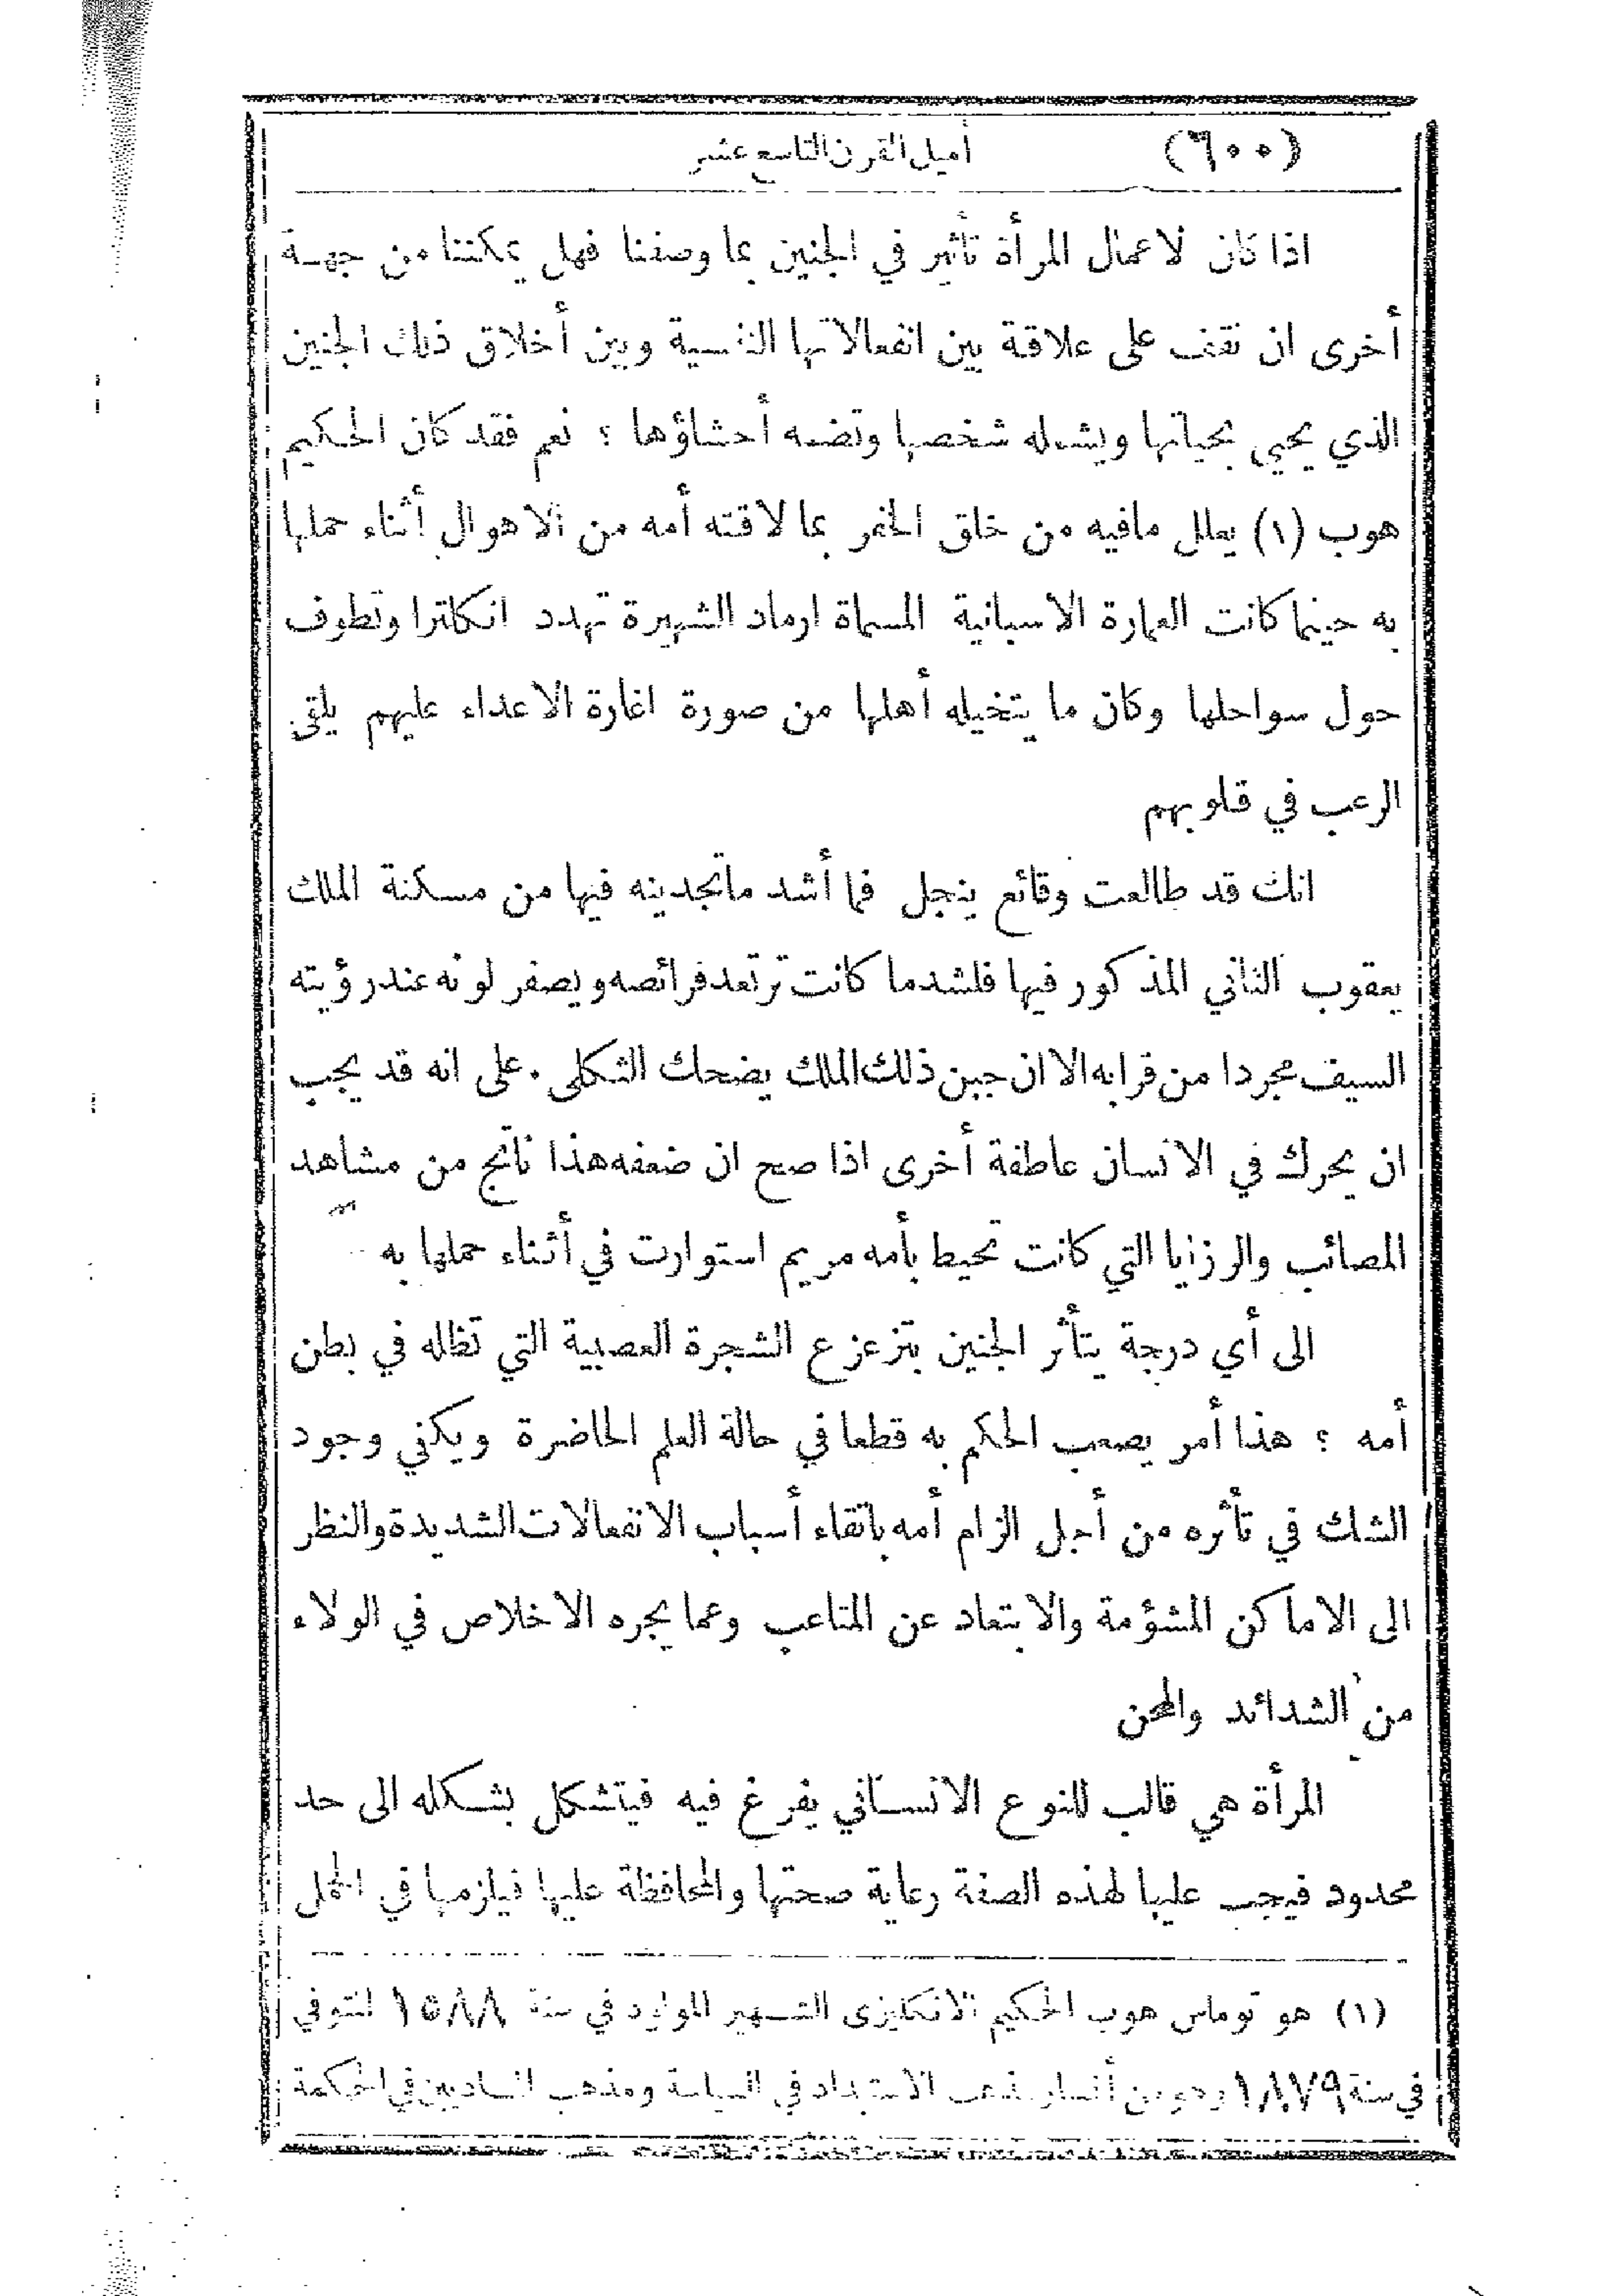 (٦٠٠) أميل القرن التاسع عشر
اذا كان لاعمال المرأة تأثير في الجنين بما وصفنا فهل يمكننا من جهة
أخرى ان نقف على علاقة بين انفعالاتها النفسية وبين أخلاق ذلك الجنين
الذي يحيى بحياتها ويشمله شخصها وتضمه أحشاؤها ؟ نعم فقد كان الحكيم
هوب (١) يعلل مافيه من خلق الخفر بما لاقته أمه من الاهوال أثناء حملها
به حينما كانت العمارة الاسبانية المسماة ارماد الشهيرة تهدد انكلترا وتطوف
حول سواحلها وكان ما يتخيله أهلها من صورة اغارة الاعداء عليهم يلقي
الرعب في قلوبهم
انك قد طالعت وقائع ينجل فما أشد ماتجدينه فيها من مسكنة الملك
يعقوب الثاني المذكور فيها فلشدما كانت ترتعد فرائصه ويصفر لونه عند رؤيته
السيف مجردا من قرابه الا ان جبن ذلك الملك يضحك الثكلى . على انه قد يجب
ان يحرك في الانسان عاطفة أخرى اذا صح ان ضعفه هذا ناتج من مشاهد
المصائب والرزايا التي كانت تحيط بأمه مريم استوارت في أثناء حملها به
الى أي درجة يتأثر الجنين بتزعزع الشجرة العصبية التي تظله في بطن
أمه ؟ هذا أمر يصعب الحكم به قطعا في حالة العلم الحاضرة ويكفي وجود
الشك في تأثره من أجل الزام أمه باتقاء أسباب الانفعالات الشديدة والنظر
الى الاماكن المشؤمة والابتعاد عن المتاعب وعما يجره الاخلاص في الولاء
من الشدائد والمحن
المرأة هي قالب للنوع الانساني يفرغ فيه فيتشكل بشكله الى حد
محدود فيجب عليها لهذه الصفة رعاية صحتها والمحافظة عليها فيلزمها في الحمل
(١) هو توماس هوب الحكيم الانكليزى الشهير المولود في سنة ١٥٨٨ المتوفي
في سنة ١٨٧٩ وهو من أنصار مذهب الاستبداد في السياسة ومذهب الماديين في الحكمة